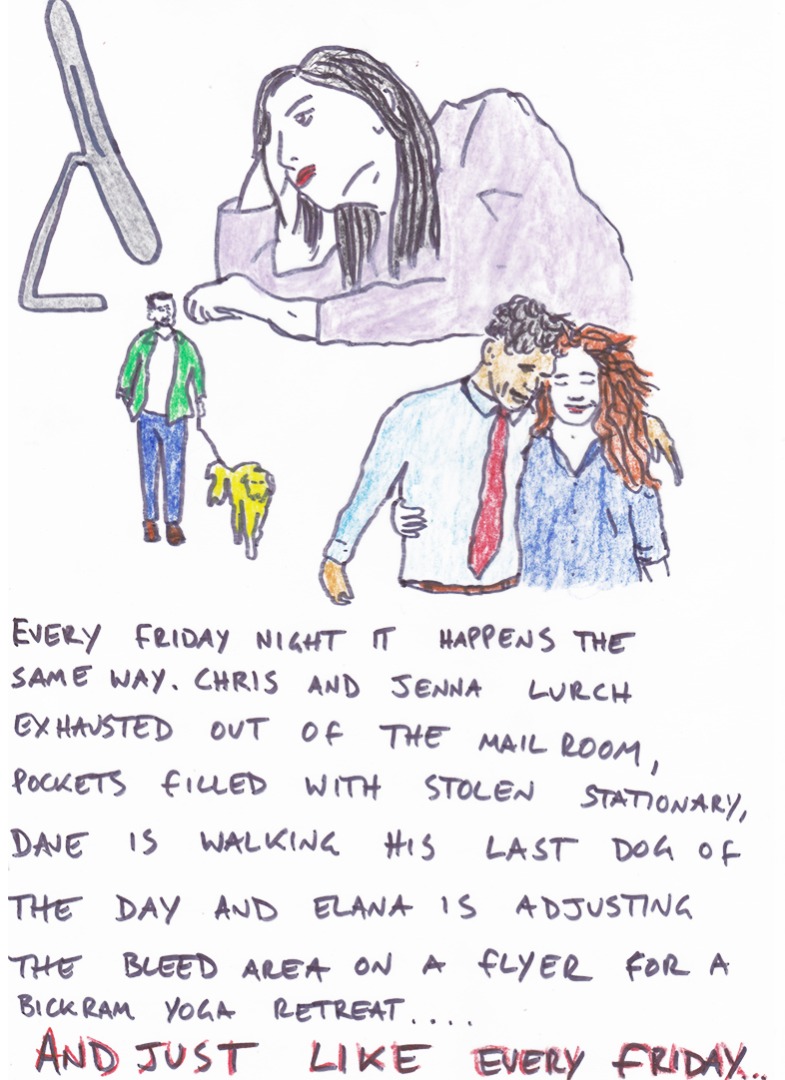 EVERY FRIDAY NIGHT IT HAPPENS THE
SAME WAY. CHRIS AND JENNA LURCH
EXHAUSTED OUT OF THE MAIL ROOM,
POCKETS FILLED WITH STOLEN STATIONARY,
DAVE IS WALKING HIS LAST DOG OF
THE DAY AND ELANA IS ADJUSTING
THE BLEED AREA ON A FLYER FOR A
BICKRAM YOGA RETREAT....
AND JUST LIKE EVERY FRIDAY...